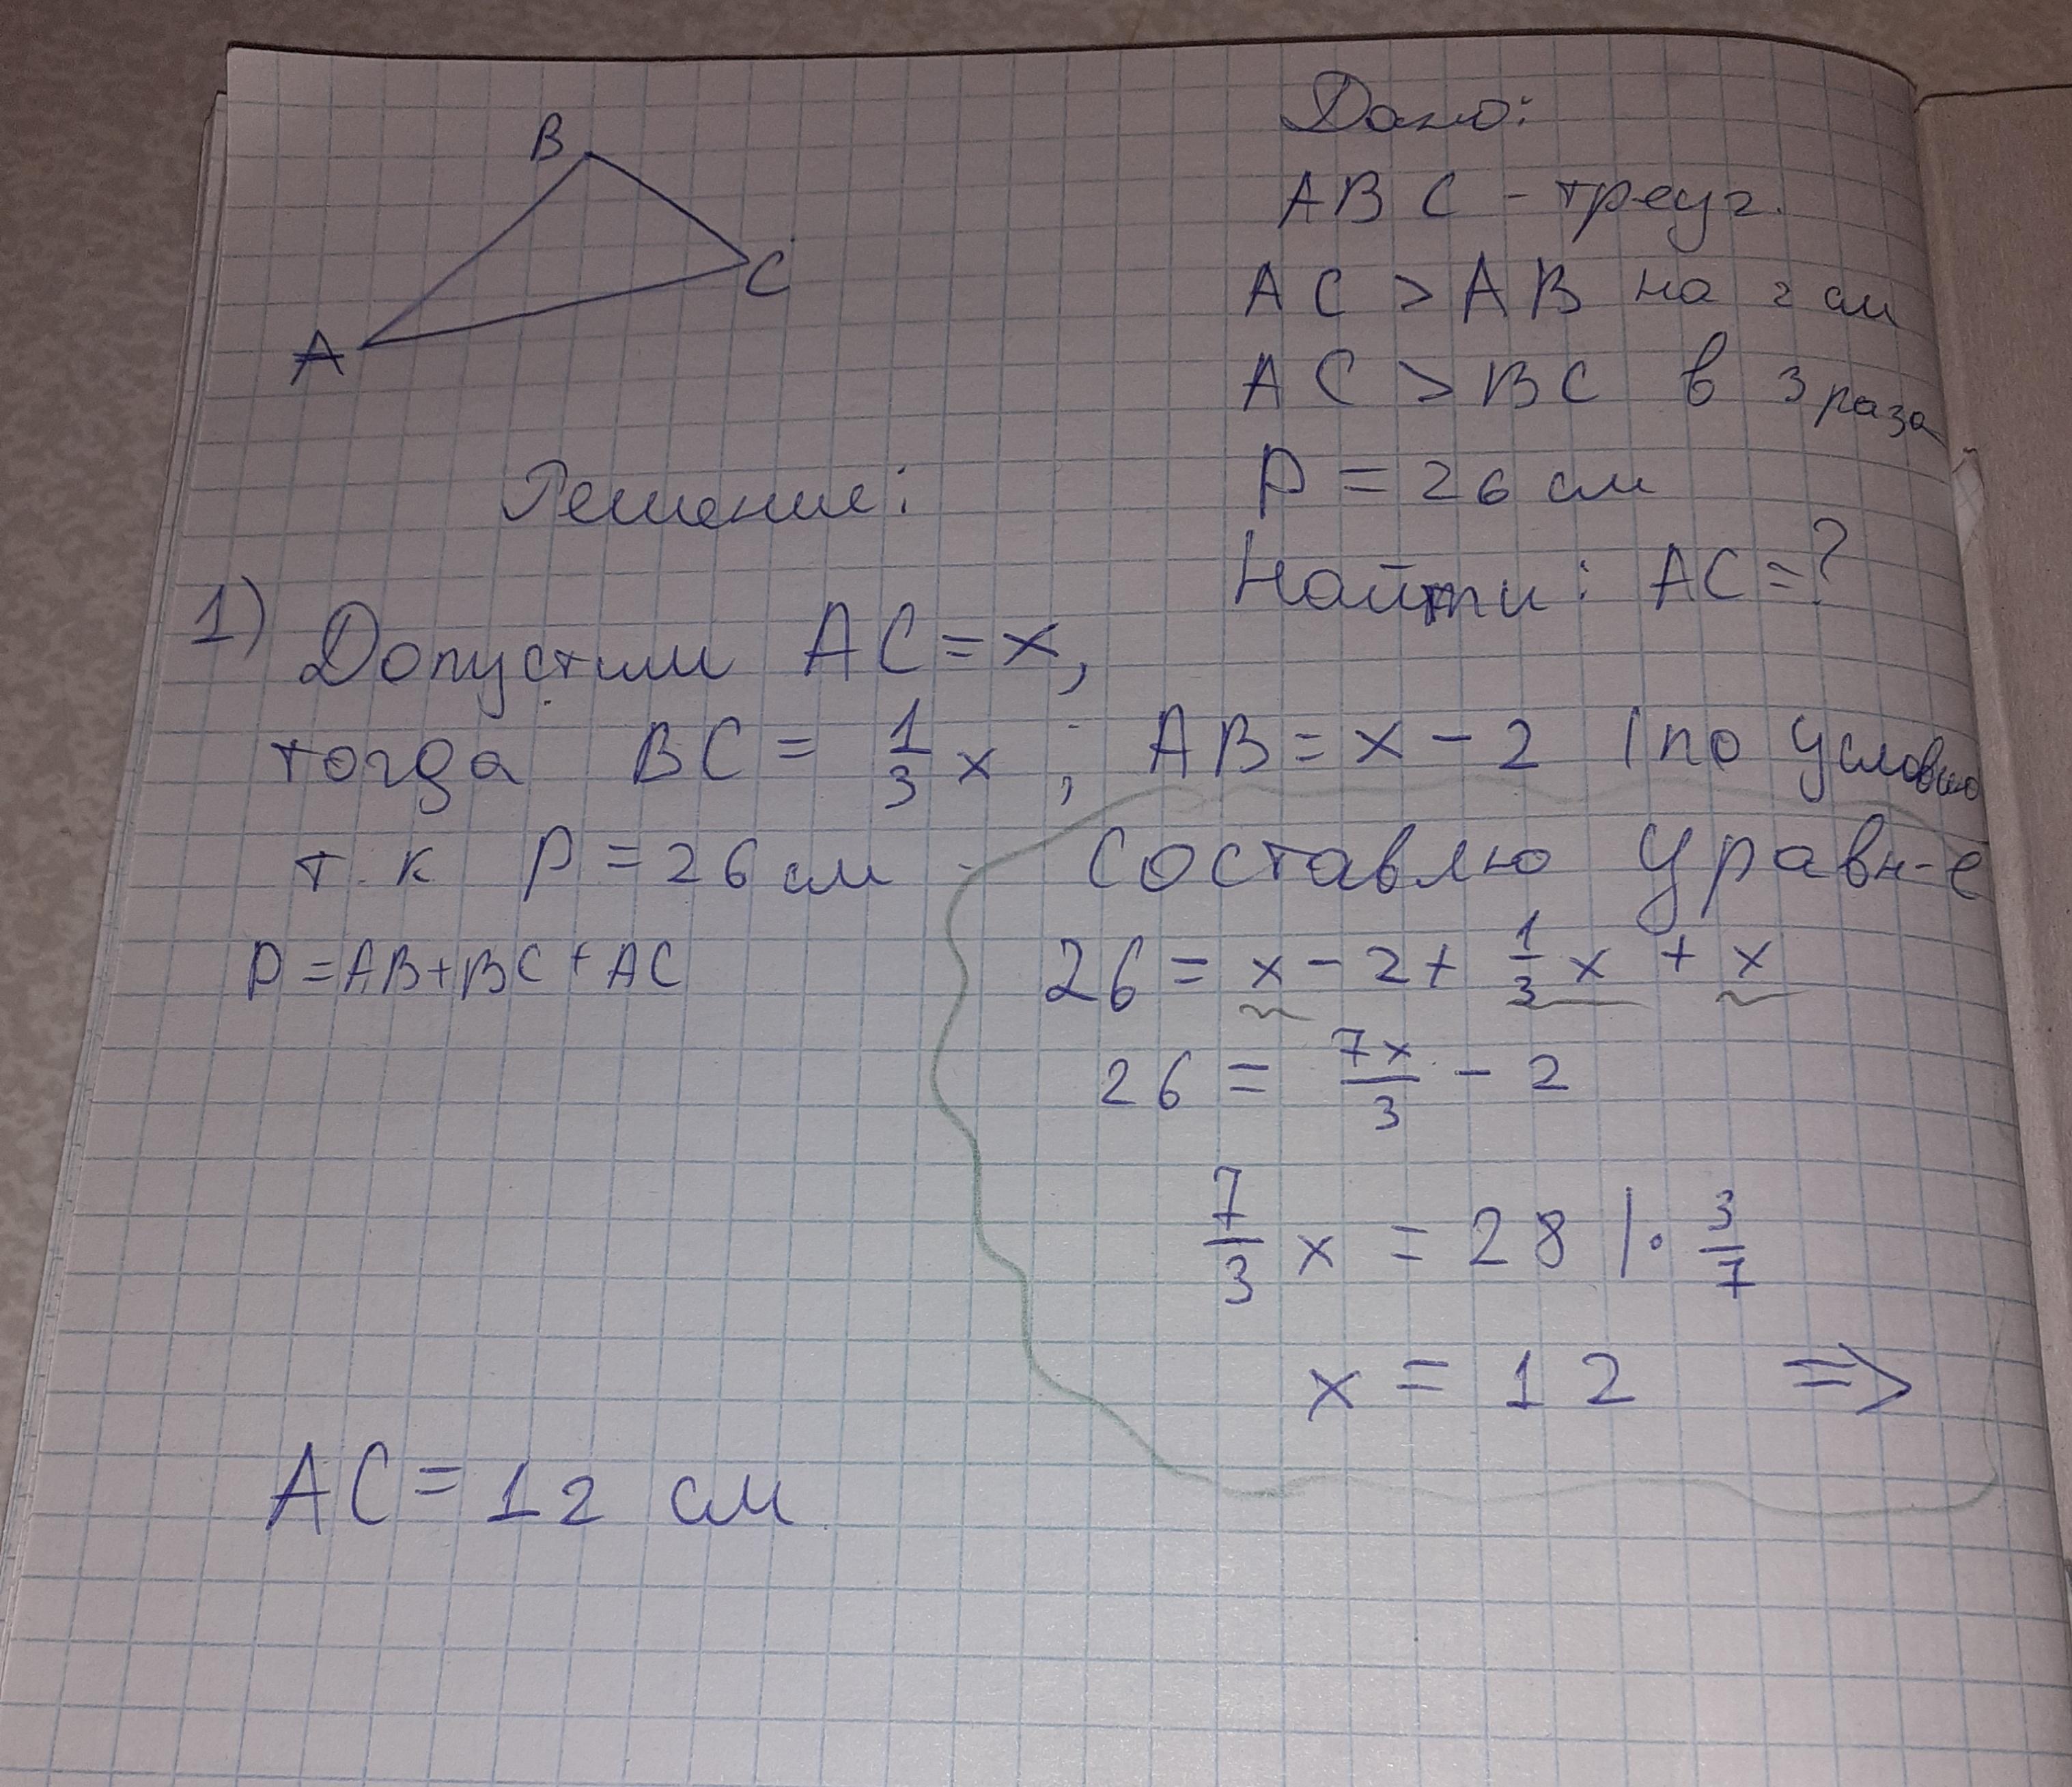 B
C
A
Дано:
ABC - треуг.
AC > AB на 2 см
AC > BC в 3 раза
P = 26 см
Найти: AC = ?
Решение:
1) Допустим AC = x,
тогда BC = 1/3 x ; AB = x - 2 (по условию
т.к P = 26 см - составлю уравн-е
P = AB + BC + AC
26 = x - 2 + 1/3 x + x
26 = 7x/3 - 2
7/3 x = 28 | · 3/7
x = 12 =>
AC = 12 см